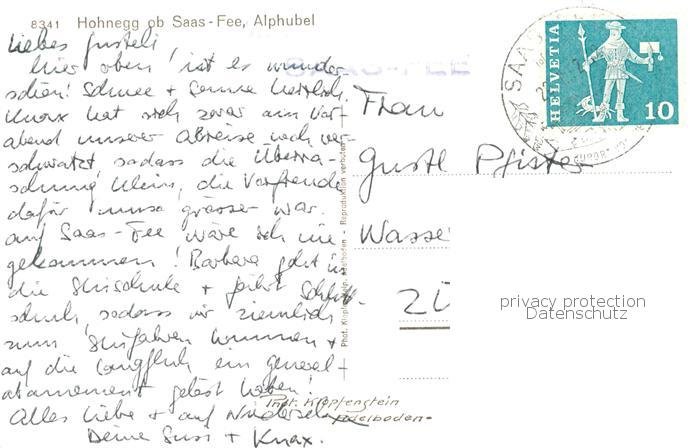 8341 Hohnegg ob Saas-Fee, Alphubel
Liebes Gusteli,
hier oben ist es wunder-
schön! Schnee + Sonne herrlich.
Knox hat sich zwar am Vor-
abend unserer Abreise noch ver-
schwatzt, sodass die Überra-
schung klein, die Vorfreude
dafür umso grösser war.
auf Saas-Fee wäre ich nie
gekommen! Barbara geht in
die Skischule + fährt Schlitt-
schuh, sodass wir ziemlich
zum Skifahren kommen +
auf die Längfluh ein general-
abonnement gelöst haben!
Alles Liebe + auf Wiedersehn
Deine Susi + Knox.
SAAS-FEE
HELVETIA
10
SAAS
Frau
Gustl Pfister
Wasse
ZÜ
privacy protection
Datenschutz
Phot. Klopfenstein, Adelboden - Reproduktion verboten
Phot. Klopfenstein
Adelboden